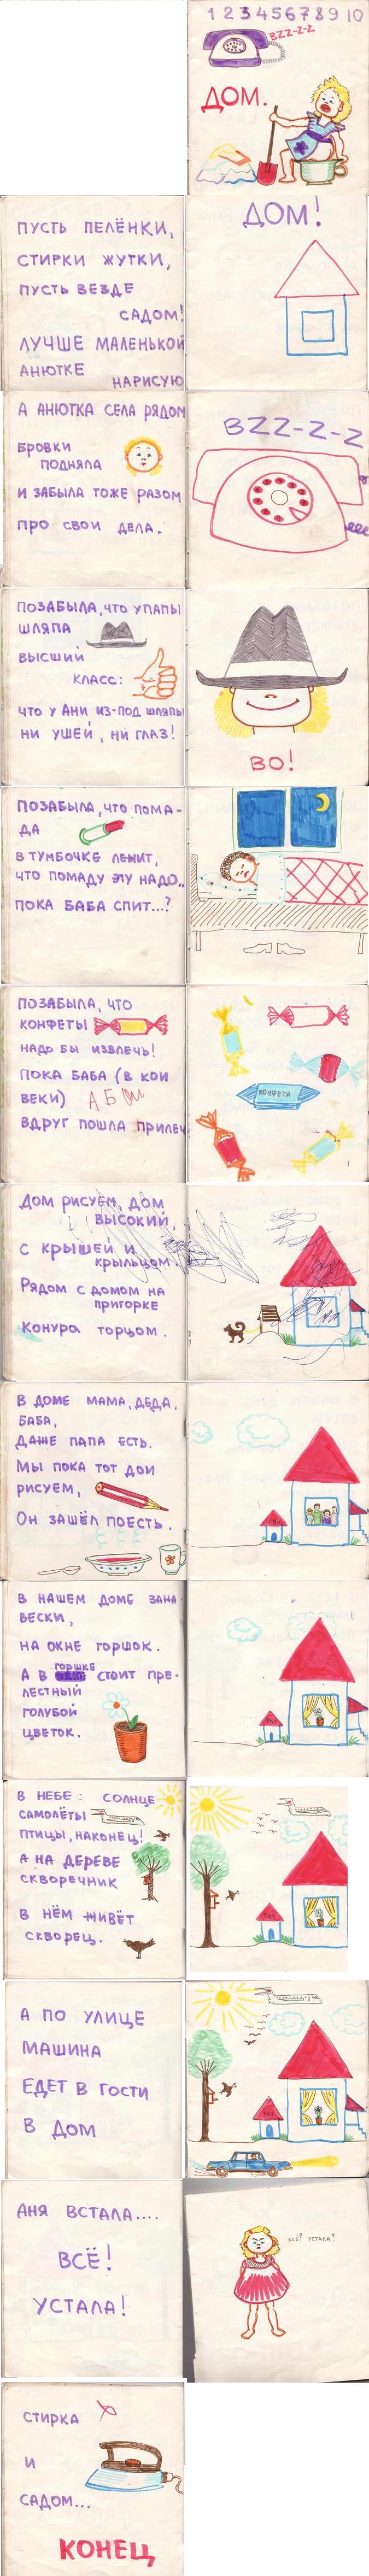 1 2 3 4 5 6 7 8 9 10
BZZ-Z-Z
ДОМ.
ПУСТЬ ПЕЛЁНКИ,
СТИРКИ ЖУТКИ,
ПУСТЬ ВЕЗДЕ
САДОМ!
ЛУЧШЕ МАЛЕНЬКОЙ
АНЮТКЕ
НАРИСУЮ
ДОМ!
А АНЮТКА СЕЛА РЯДОМ
БРОВКИ
ПОДНЯЛА
И ЗАБЫЛА ТОЖЕ РАЗОМ
ПРО СВОИ ДЕЛА.
BZZ-Z-Z
ПОЗАБЫЛА, ЧТО У ПАПЫ
ШЛЯПА
ВЫСШИЙ
КЛАСС:
ЧТО У АНИ ИЗ-ПОД ШЛЯПЫ
НИ УШЕЙ, НИ ГЛАЗ!
ВО!
ПОЗАБЫЛА, ЧТО ПОМА-
ДА
В ТУМБОЧКЕ ЛЕЖИТ,
ЧТО ПОМАДУ ЭТУ НАДО..
ПОКА БАБА СПИТ...?
ПОЗАБЫЛА, ЧТО
КОНФЕТЫ
НАДО БЫ ИЗВЛЕЧЬ!
ПОКА БАБА (В КОИ
ВЕКИ)
ВДРУГ ПОШЛА ПРИЛЕЧ
КОНФЕТА
ДОМ РИСУЕМ, ДОМ
ВЫСОКИЙ,
С КРЫШЕЙ И
КРЫЛЬЦОМ.
РЯДОМ С ДОМОМ НА
ПРИГОРКЕ
КОНУРА ТОРЦОМ.
В ДОМЕ МАМА, ДЕДА,
БАБА,
ДАЖЕ ПАПА ЕСТЬ.
МЫ ПОКА ТОТ ДОМ
РИСУЕМ,
ОН ЗАШЁЛ ПОЕСТЬ.
В НАШЕМ ДОМЕ ЗАНА-
ВЕСКИ,
НА ОКНЕ ГОРШОК.
А В ГОРШКЕ СТОИТ ПРЕ-
ЛЕСТНЫЙ
ГОЛУБОЙ
ЦВЕТОК.
В НЕБЕ: СОЛНЦЕ
САМОЛЁТЫ
ПТИЦЫ, НАКОНЕЦ!
А НА ДЕРЕВЕ
СКВОРЕЧНИК
В НЁМ ЖИВЁТ
СКВОРЕЦ.
А ПО УЛИЦЕ
МАШИНА
ЕДЕТ В ГОСТИ
В ДОМ
АНЯ ВСТАЛА....
ВСЁ!
УСТАЛА!
ВСЁ! УСТАЛА!
СТИРКА
И
САДОМ...
КОНЕЦ